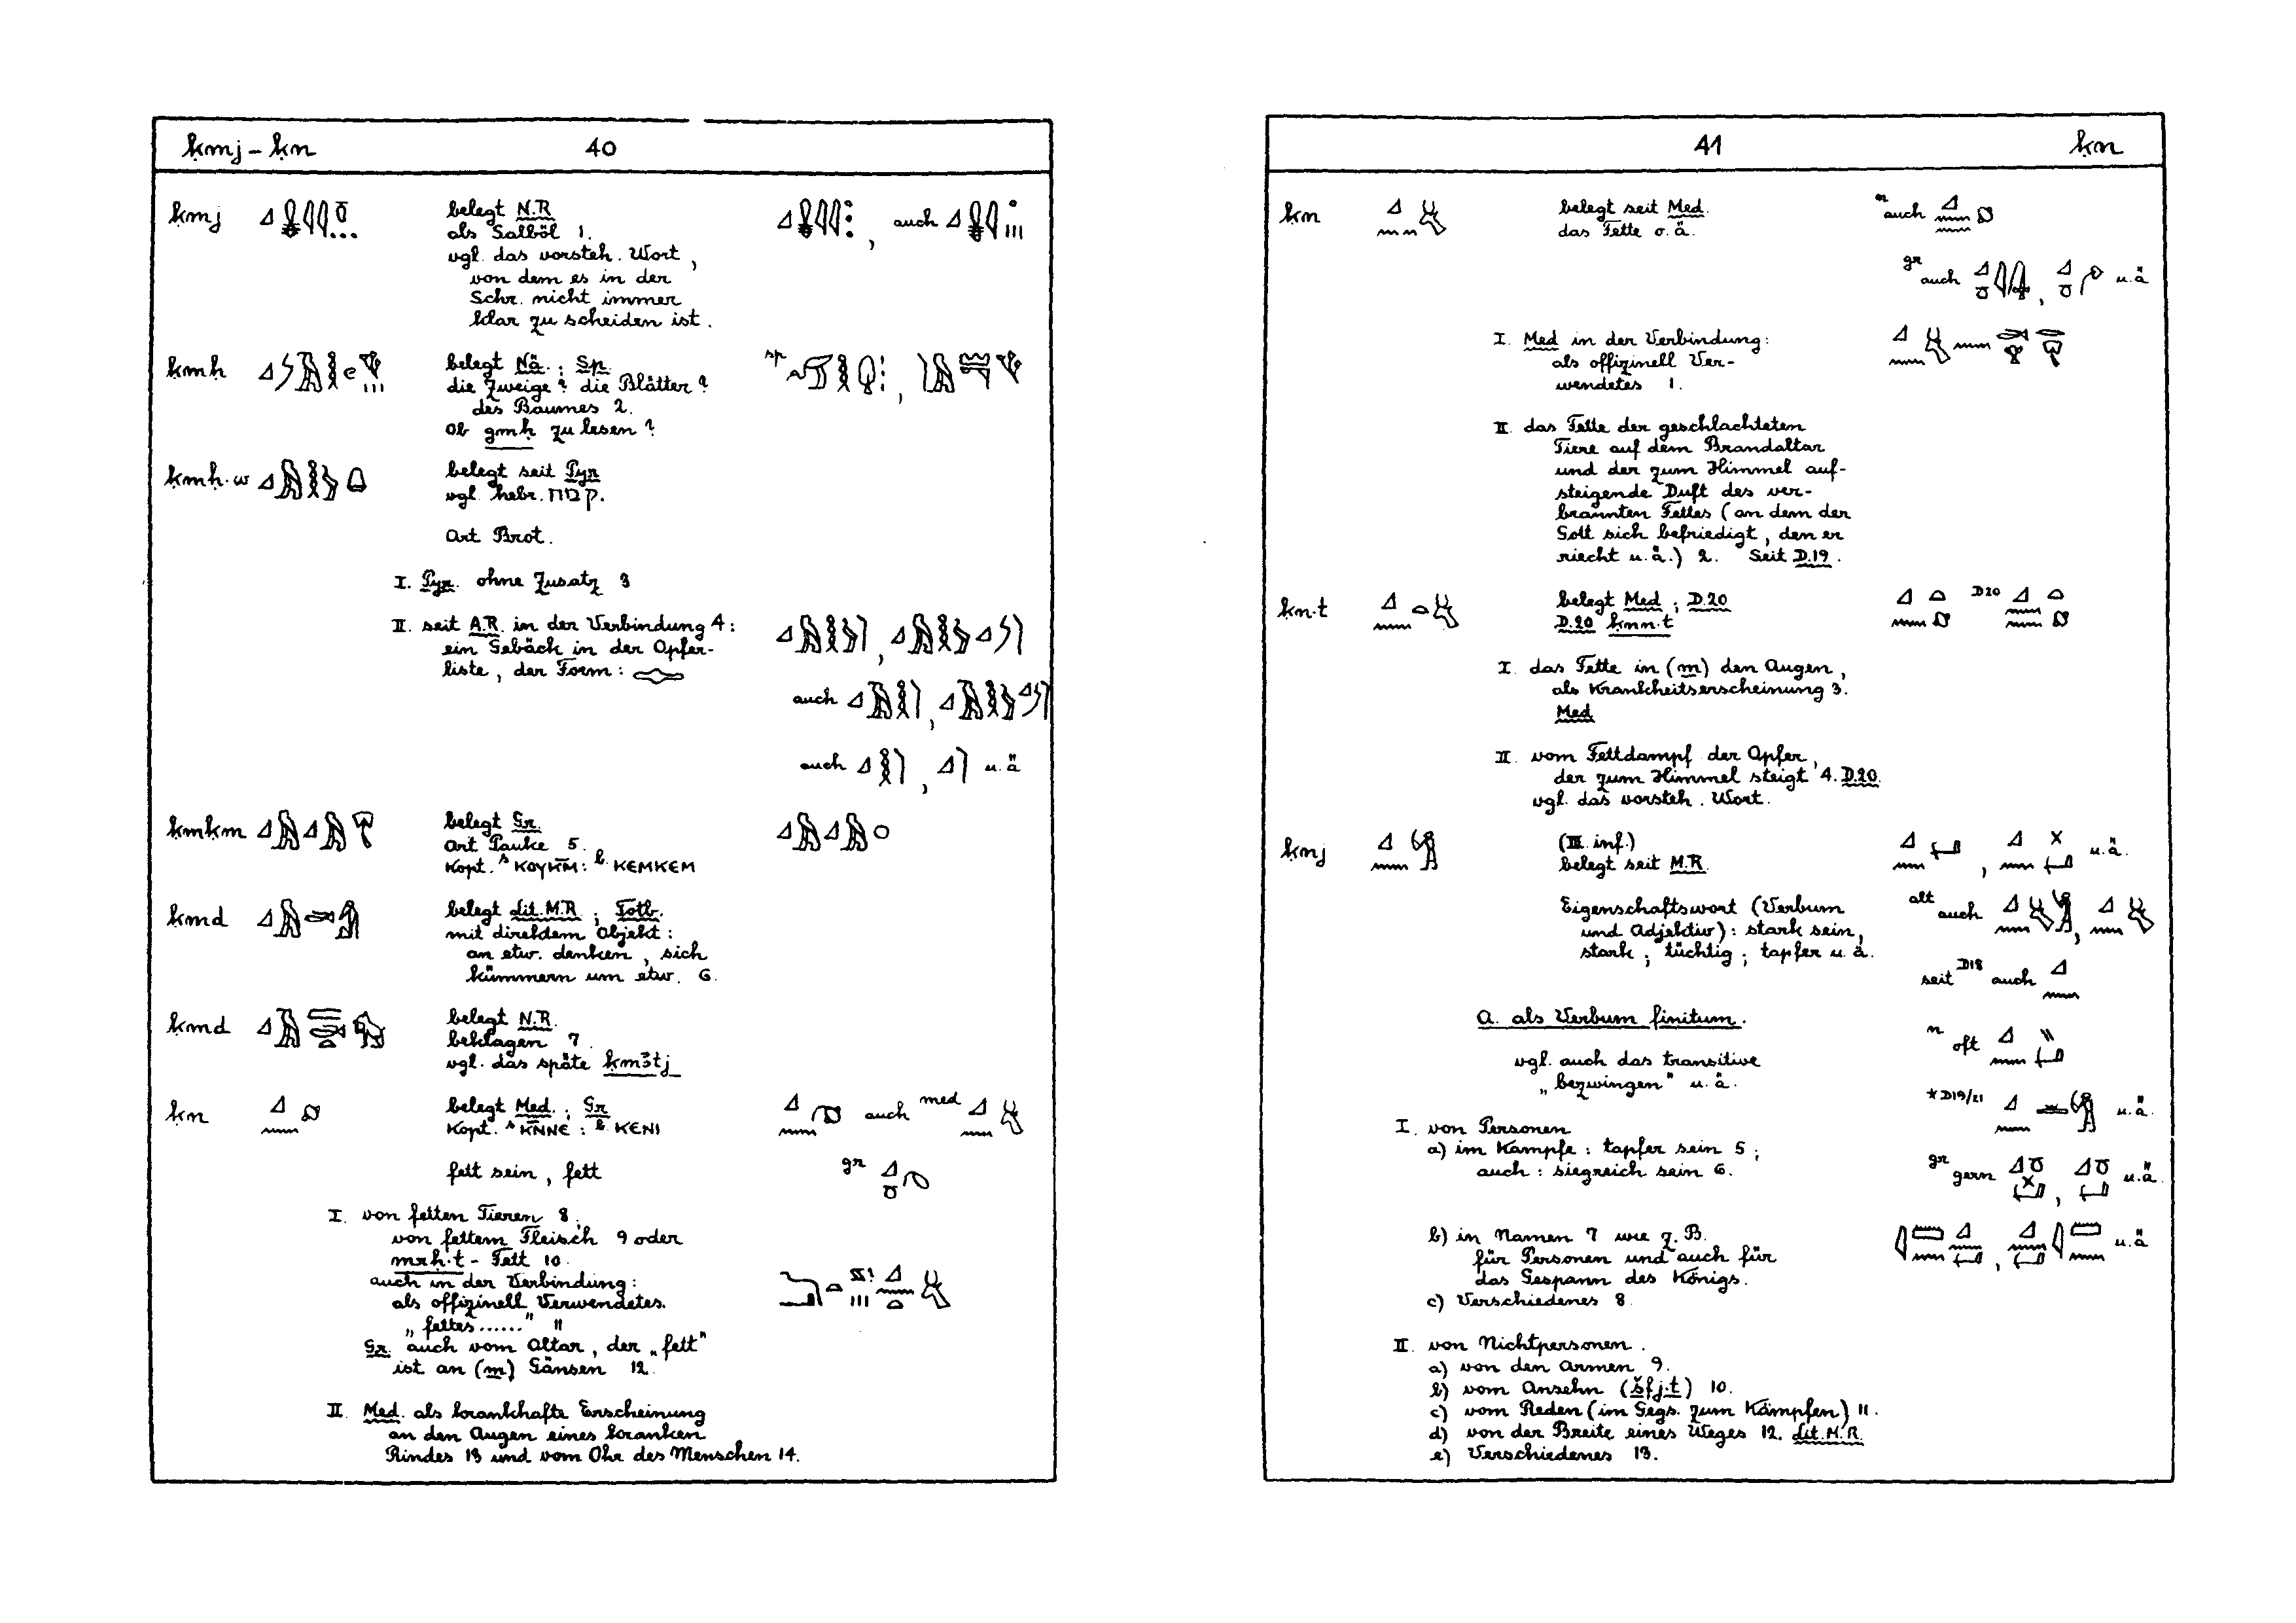 ḳmj – ḳn 40
ḳmj belegt N.R
als Salböl 1.
vgl. das vorsteh. Wort,
von dem es in der
Schr. nicht immer
klar zu scheiden ist.
auch
ḳmḥ belegt Nä.; Sp.
die Zweige? die Blätter?
des Baumes 2.
Ob gmḥ zu lesen?
sp
ḳmḥ·w belegt seit Pyr
vgl. hebr. קמח.
Art Brot.
I. Pyr. ohne Zusatz 3
II. seit A.R. in der Verbindung 4:
ein Gebäck in der Opfer-
liste, der Form:
auch
auch u.ä
ḳmḳm belegt Gr.
Art Pauke 5.
Kopt. s ⲕⲟⲩⲕⲙ̄: b. ⲕⲉⲙⲕⲉⲙ
ḳmd belegt Lit. M.R.; Totb.
mit direktem Objekt:
an etw. denken, sich
kümmern um etw. 6.
ḳmd belegt N.R.
beklagen 7.
vgl. das späte ḳmꜣtj
ḳn belegt Med.; Gr
Kopt. s ⲕⲛ̄ⲛⲉ: b. ⲕⲉⲛⲓ
auch med
fett sein, fett
gr
I. von fetten Tieren 8,
von fettem Fleisch 9 oder
mrḥ·t - Fett 10.
auch in der Verbindung:
als offizinell Verwendetes.
„fettes......" 11
Gr. auch vom Altar, der „fett"
ist an (m) Gänsen 12.
II. Med. als krankhafte Erscheinung
an den Augen eines kranken
Rindes 13 und vom Ohr des Menschen 14.
41 ḳn
ḳn belegt seit Med.
das Fette o.ä.
n auch
gr auch u.ä
I. Med in der Verbindung:
als offizinell Ver-
wendetes 1.
II. das Fette der geschlachteten
Tiere auf dem Brandaltar
und der zum Himmel auf-
steigende Duft des ver-
brannten Fettes (an dem der
Gott sich befriedigt, den er
riecht u.ä.) 2. Seit D.19.
ḳn·t belegt Med; D.20
D.20 ḳnn·t
D20
I. das Fette in (m) den Augen,
als Krankheitserscheinung 3.
Med
II. vom Fettdampf der Opfer,
der zum Himmel steigt 4. D.20.
vgl. das vorsteh. Wort.
ḳnj (III. inf.)
belegt seit M.R.
u.ä.
Eigenschaftswort (Verbum
und Adjektiv): stark sein,
stark; tüchtig; tapfer u.ä.
alt auch
seit D18 auch
A. als Verbum finitum.
n oft
vgl. auch das transitive
„bezwingen" u.ä.
*D19/21 u.ä.
I. von Personen
a) im Kampfe: tapfer sein 5;
auch: siegreich sein 6.
gr gern u.ä.
b) in Namen 7 wie z.B.
für Personen und auch für
das Gespann des Königs.
u.ä
c) Verschiedenes 8.
II. von Nichtpersonen.
a) von den Armen 9.
b) vom Ansehn (šfj·t) 10.
c) vom Reden (im Gegs. zum Kämpfen) 11.
d) von der Breite eines Weges 12. Lit. M.R.
e) Verschiedenes 13.